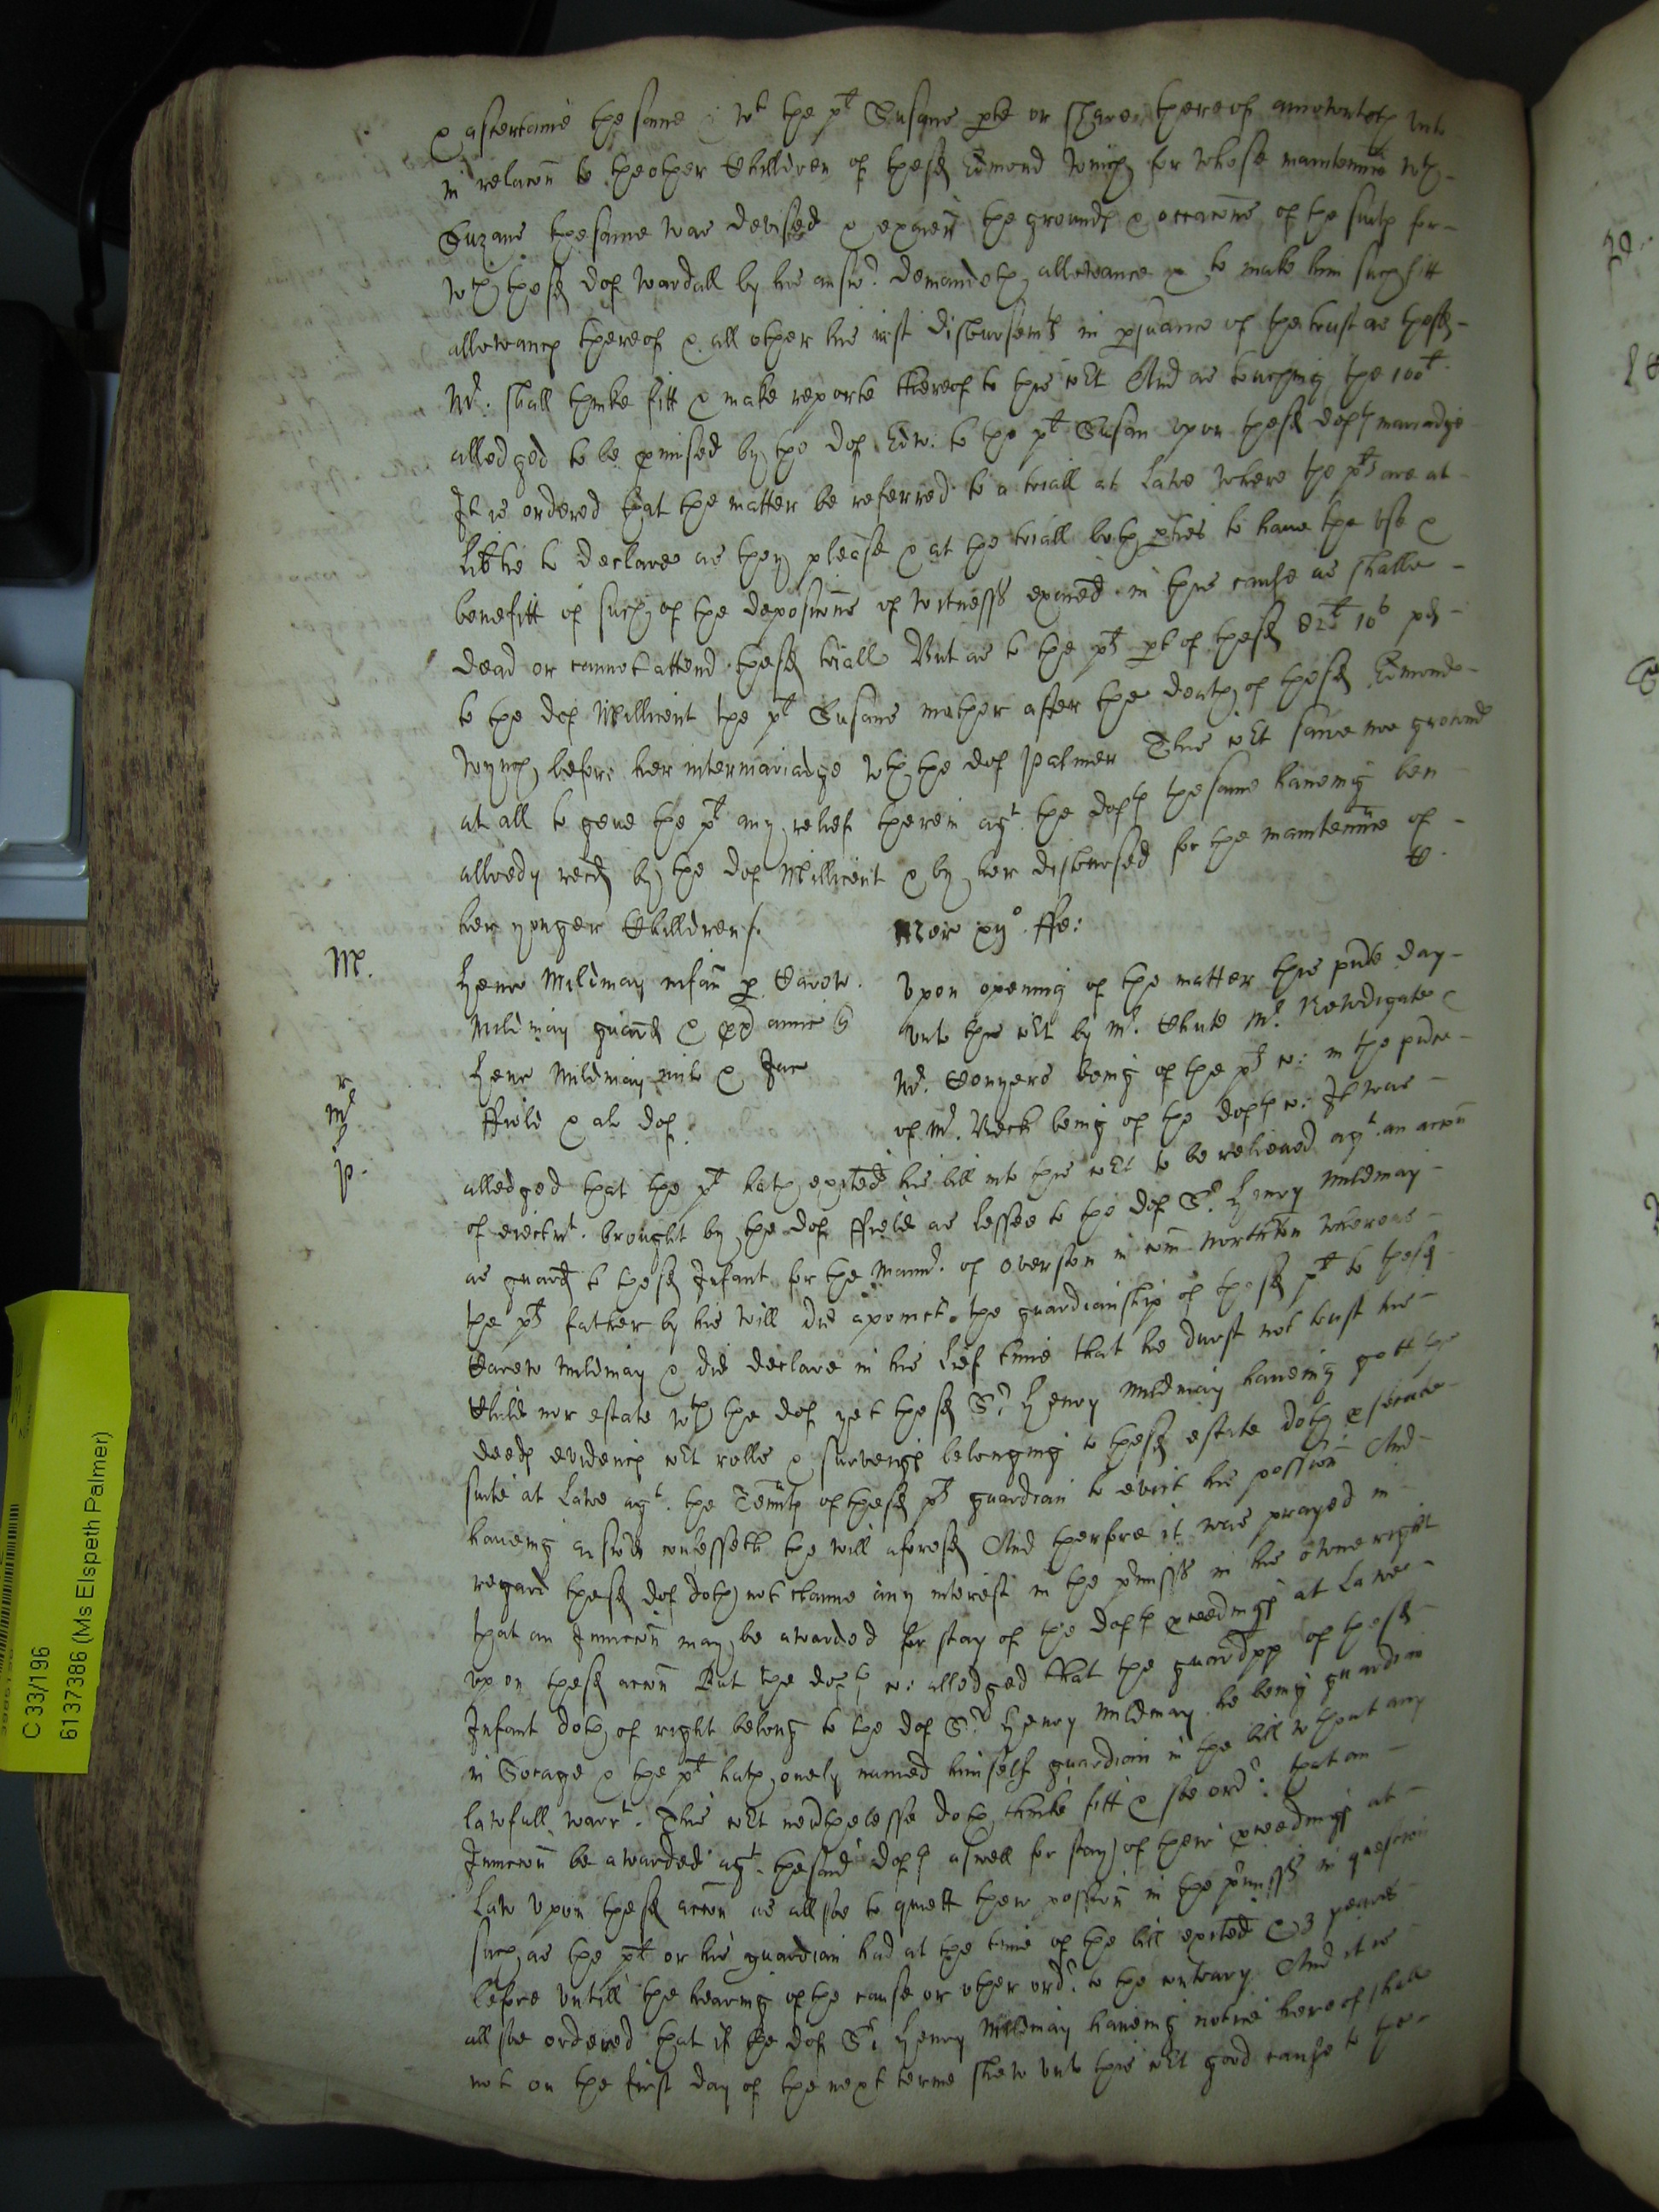 & ascertaine the same & wt the plt Susans pte or share thereof amounteth unto
in relacon to the other Children of the sd Edmond Winch for whose maintennce wth
Suzans the same was devised & exaiet the grounds & occacons of the suite for
wch the sd deft Wardall by his answr demandeth allowance & to make him such fitt
allowance thereof & all other his just disbursemts in psuance of the trust as the sd
Mr. shall thinke fitt & make reporte thereof to this Cort And as touching the 100l.
alledged to be pmised by the deft Edw. to the plt Susan upon the sd defts mariadge
It is ordered that the matter be referred to a triall at Lawe where the plts are at
libtie to declare as they please & at the triall both pties to have the use &
benefitt of such of the deposicons of witnesss exaied in this cause as shalbe
dead or cannot attend the sd triall But as to the plts pt of the sd 82l 10s pd
to the deft Millicent the plt Susans mother after the death of the sd Edmond
Wynch before her intermariadge wth the deft Palmer This Cort sawe noe ground
at all to geve the plt any relief therein agt. the defts the same haveing ben
allredy recd by the deft Millicent & by her disbursed for the maintennce of
her yonger Children/.
Mer xijo. Fe:
M.
Henr Mildmay infan p Carew
Mildmay guard & px amic
Henr Mildmay milit & Jac
ffield & al def
Upon opening of the matter this pnte day
unto this Cort by Mr. Chute Mr. Newdigate &
Mr. Conyers being of the plts C: in the pnce
of Mr. Beck being of the defts C: It was
r
Mr
p.
alledged that the plt hath exited his bill into this Cort to be relieved agt. an accon
of eiectmt. brought by the deft ffield as lessee to the deft Sr. Henry Mildmay
as guard to the sd Infant for the Mannr. of Overston in Com Northton whereas
the plts father by his will did apoinct the guardianship of the sd plt to the sd
Carew Mildmay & did declare in his lief time that he durst not trust his
Child nor estate wth the deft yet the sd Sr Henry Mildmay haveing gott the
deeds evidencs Cort rolls & surveighs belonging to the sd estate doth psecute
suite at Lawe agt. the Tennts of the sd plts guardian to evict his possion And
haveing answd confesseth the will aforesd And therfore it was prayed in
regard the sd deft doth not clame any interest in the pmisss in his owne right
that an Iniunccon may be awarded for stay of the defts pceedings at Lawe
upon the sd accon But the defts C: alledged that the guardpp of the sd
Infant doth of right belong to the deft Sr Henry Mildmay he being guardian
in Socage & the plt hath onely named himself guardian in the bill wthout any
lawfull warrt. This Cort nevtheless doth thinke fitt & soe ordr. that an
Iniunccon be awarded agt. the said defts aswell for stay of their pceedings at
Law upon the sd accon as allsoe to quiett their possion in the pmisss in question
such as the plt or his guardian had at the time of the bill exited & 3 yeares
before untill the hearing of the cause or other ordr. to the contrary And it is
allsoe ordered that if the deft Sr Henry Mildmay haveing notice hereof shall
not on the first day of the next terme shew unto this Cort good cause to the
C 33/196
6137386 (Ms Elspeth Palmer)